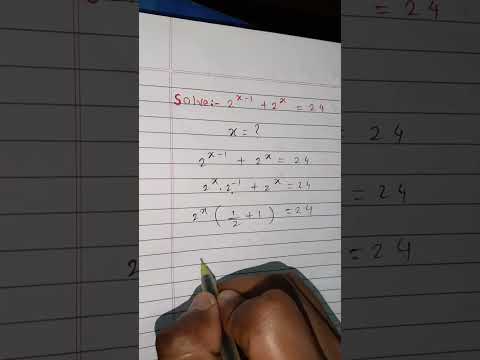 Solve:- 2^(x-1) + 2^x = 24
x = ?
2^(x-1) + 2^x = 24
2^x . 2^(-1) + 2^x = 24
2^x ( 1/2 + 1 ) = 24